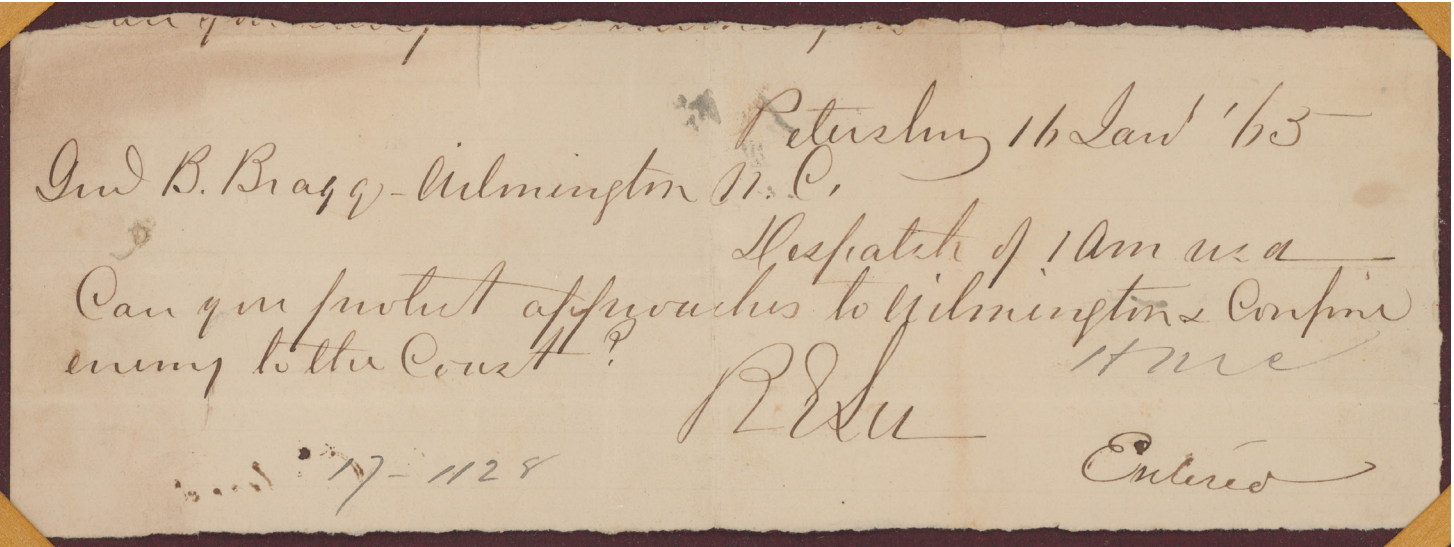 Petersburg 16 Jany '65
Genl B. Bragg - Wilmington N. C.
Despatch of 1 am recd
Can you protect approaches to Wilmington & Confine
enemy to the Coast ?
R E Lee
17 - 1128
Entered